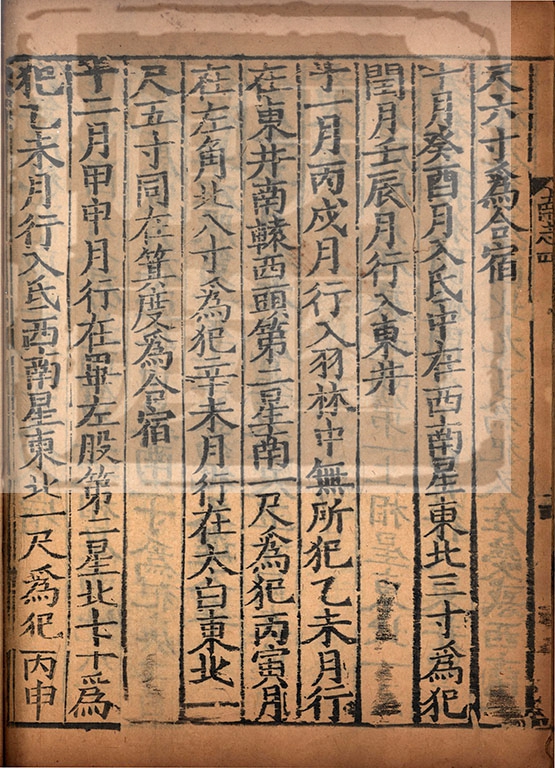 尺六寸爲合宿
十月癸酉月入氐中在西南星東北三寸爲犯
閏月壬辰月行入東井
十一月丙戌月行入羽林中無所犯乙未月行
在東井南轅西頭第二星南一尺爲犯丙寅月
在左角北八寸爲犯辛未月行在太白東北一
尺五寸同在箕度爲合宿
十二月甲申月行在畢左股第二星北七寸爲
犯乙未月行入氐西南星東北一尺爲犯丙申